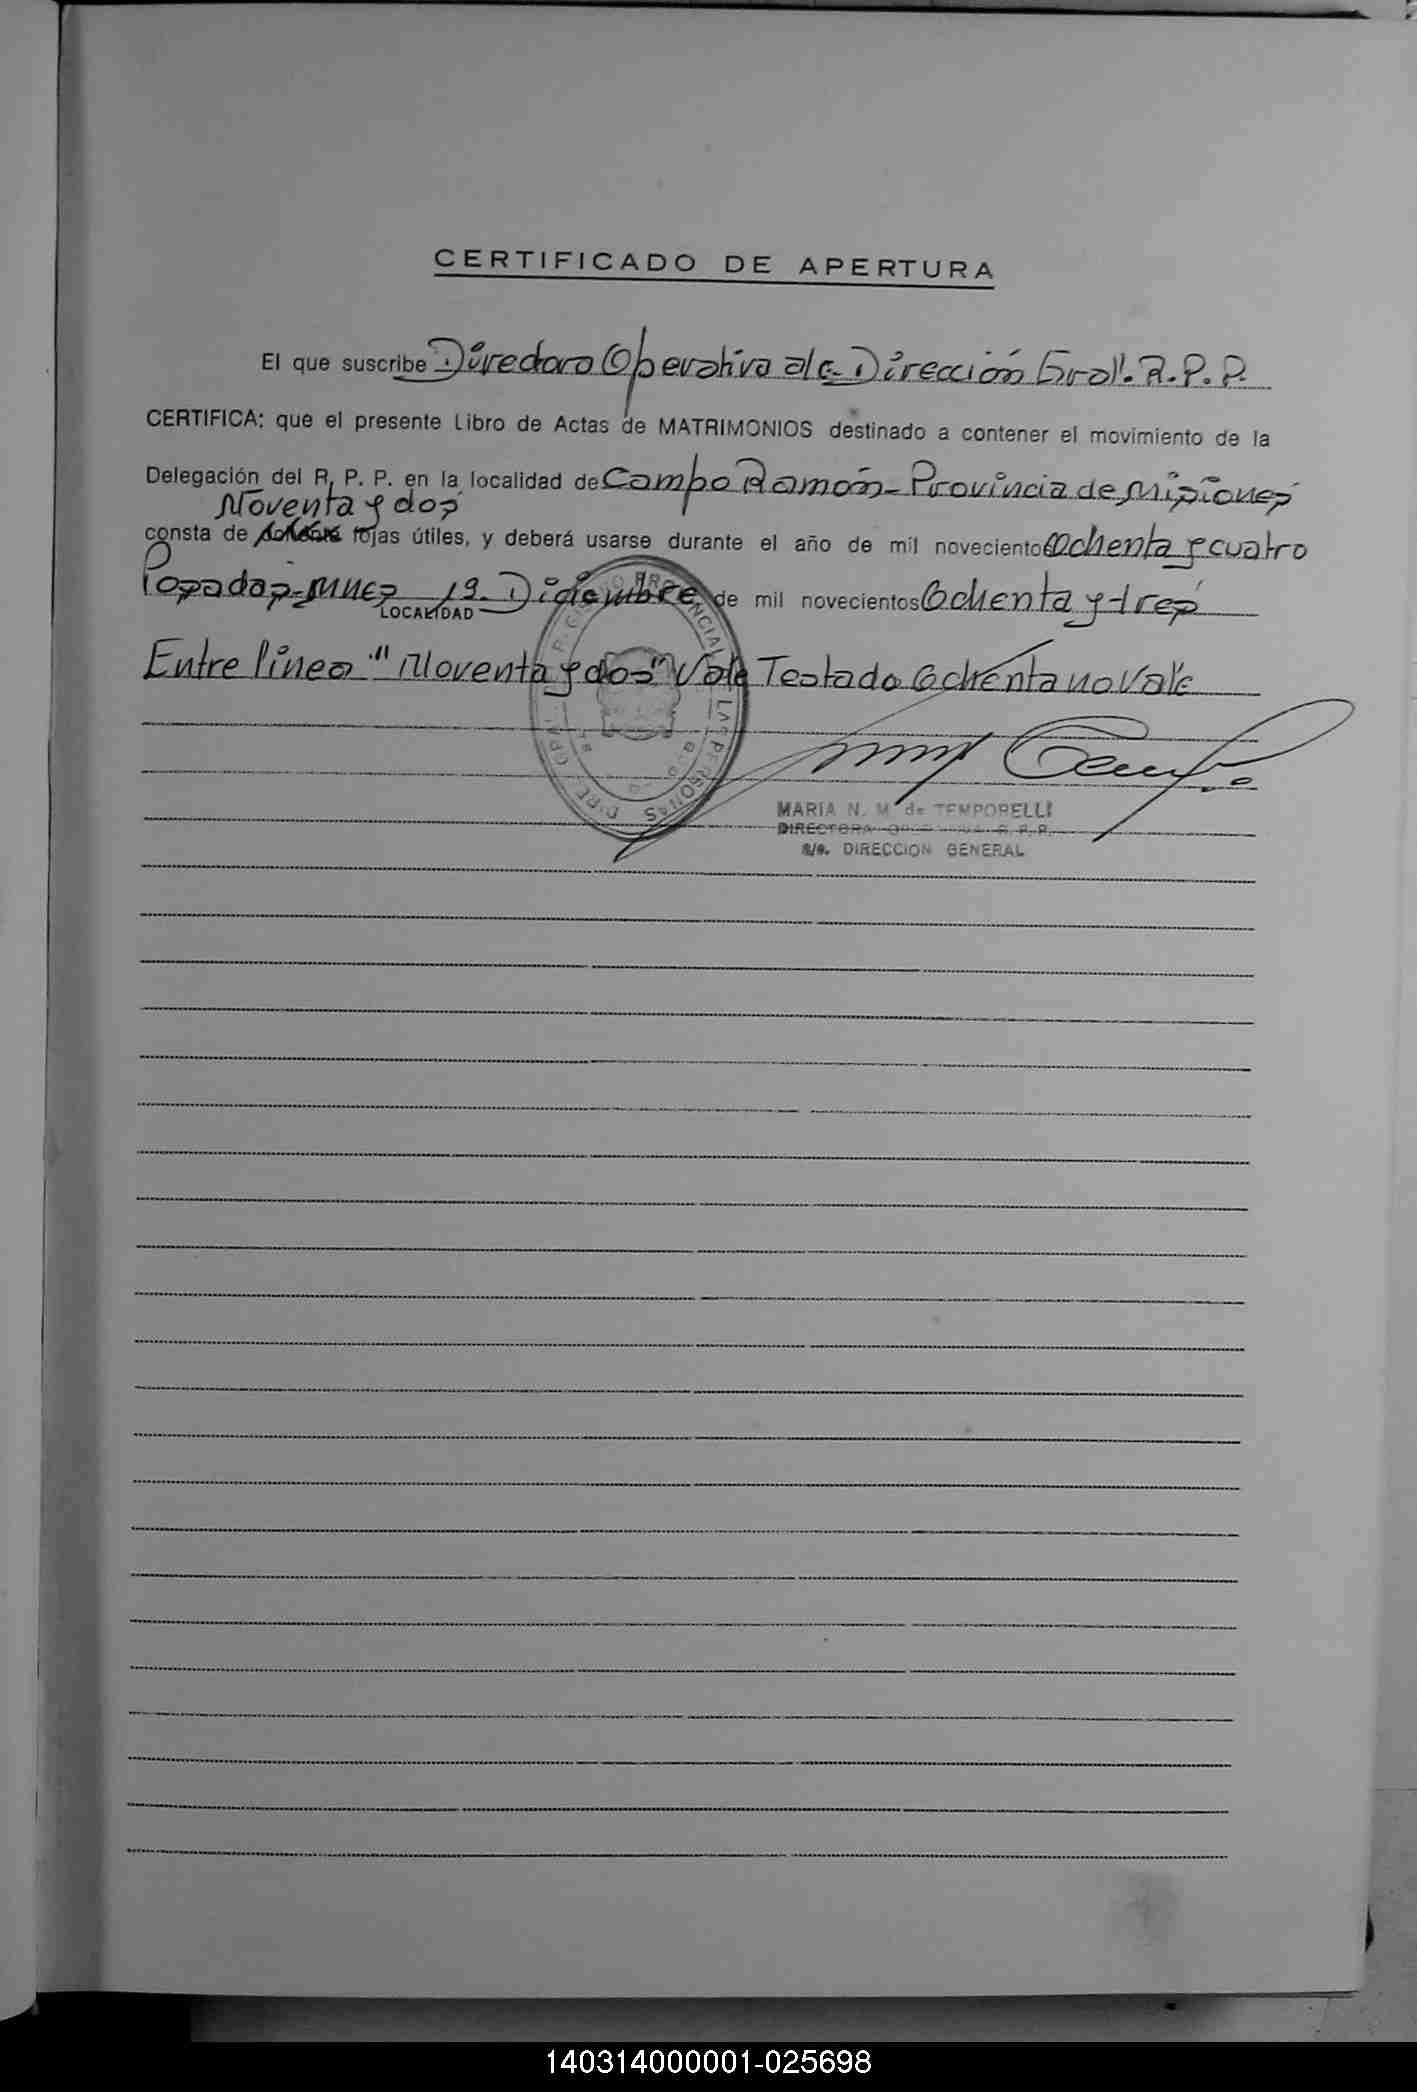 CERTIFICADO DE APERTURA
El que suscribe Directora Operativa a/c. Dirección Gral. R.P.P.
CERTIFICA: que el presente Libro de Actas de MATRIMONIOS destinado a contener el movimiento de la
Delegación del R. P. P. en la localidad de Campo Ramón - Provincia de Misiones
Noventa y dos
consta de ochenta fojas útiles, y deberá usarse durante el año de mil novecientos Ochenta y cuatro
Posadas - Mnes 19. Diciembre de mil novecientos Ochenta y tres
LOCALIDAD
Entre linea "Noventa y dos" Vale Testado Ochenta no vale
MARIA N. M. de TEMPORELLI
DIRECTORA OPERATIVA R. P. P.
a/c. DIRECCION GENERAL
140314000001-025698